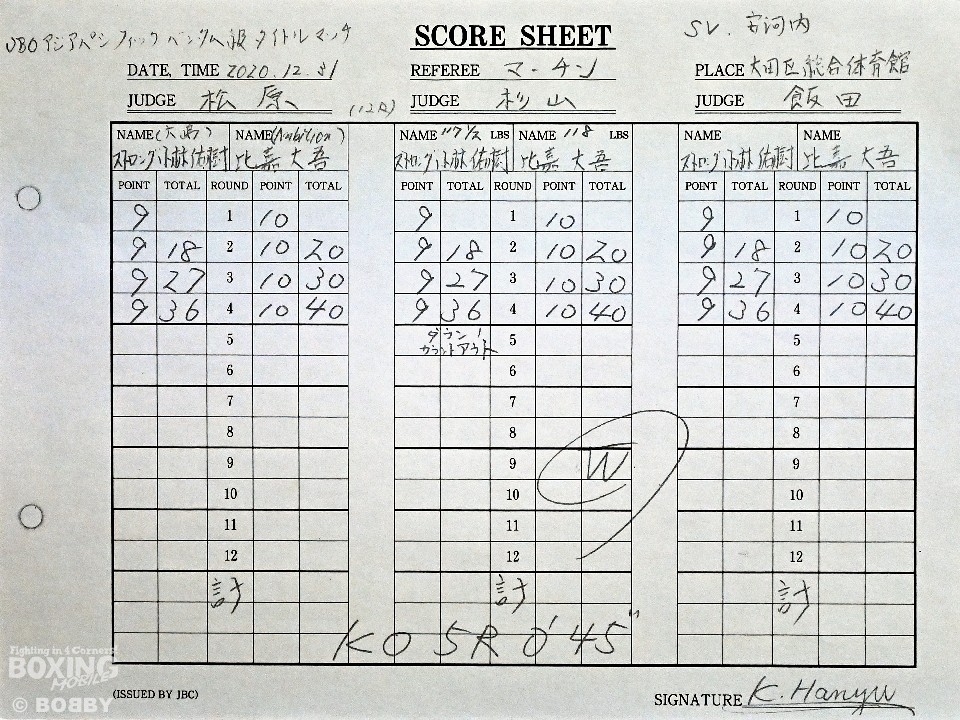 WBOアジアパシフィックバンタム級タイトルマッチ
SCORE SHEET
SV. 安河内
DATE, TIME 2020.12.31
REFEREE マーチン
PLACE 大田区総合体育館
JUDGE 松原
(12R)
JUDGE 杉山
JUDGE 飯田
NAME (大橋) NAME (Ambition)
NAME 117 1/2 LBS NAME 118 LBS
NAME NAME
ストロング小林佑樹 比嘉大吾
ストロング小林佑樹 比嘉大吾
ストロング小林佑樹 比嘉大吾
POINT TOTAL ROUND POINT TOTAL POINT TOTAL ROUND POINT TOTAL POINT TOTAL ROUND POINT TOTAL
9 1 10 9 1 10 9 1 10
9 18 2 10 20 9 18 2 10 20 9 18 2 10 20
9 27 3 10 30 9 27 3 10 30 9 27 3 10 30
9 36 4 10 40 9 36 4 10 40 9 36 4 10 40
5 ダウン! 5 5
カウントアウト
6 6 6
7 7 7
8 8 8
9 9 W 9
10 10 10
11 11 11
12 12 12
計 計 計
KO 5R 0'45"
Fighting in 4 Corners!
BOXING
MOBILE
© BOBBY
(ISSUED BY JBC)
SIGNATURE K. Hanyu